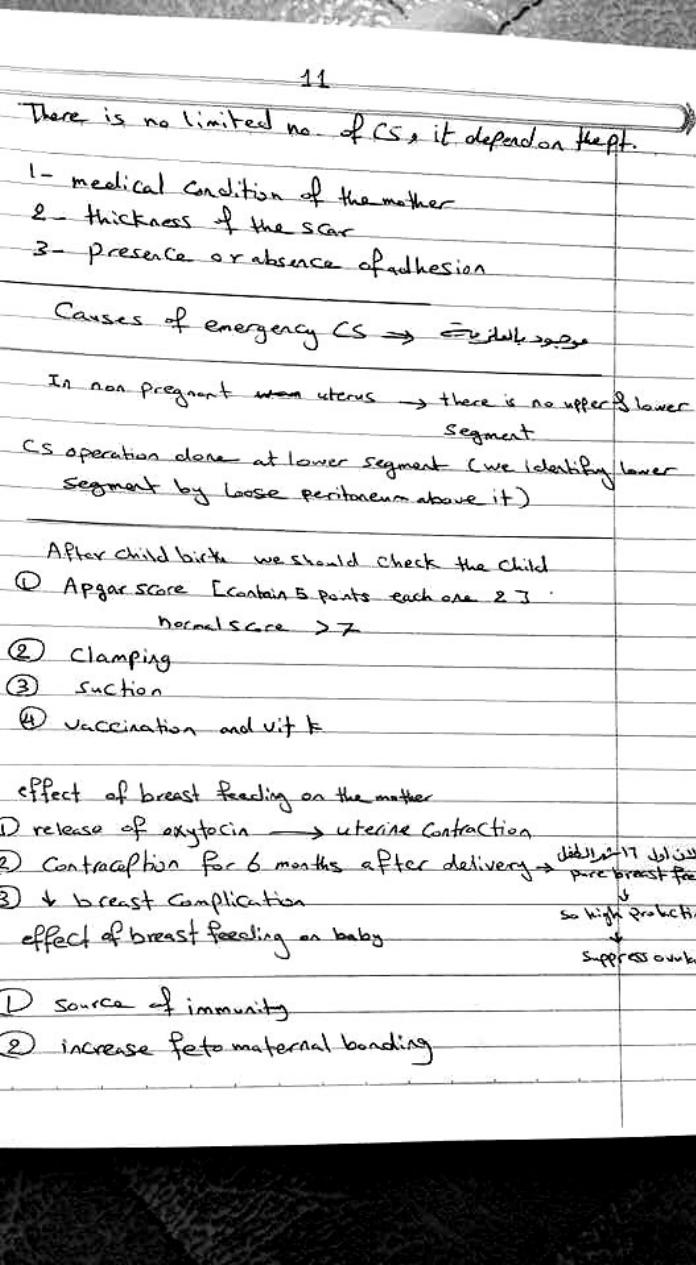 11
There is no limited no. of CS, it depend on the pt.
1- medical condition of the mother
2- thickness of the scar
3- presence or absence of adhesion
Causes of emergency CS → موجود بالملزمة
In non pregnant uterus → there is no upper & lower
segment
CS operation done at lower segment (we identify lower
segment by loose peritoneum above it)
After child birth we should check the child
① Apgar score [contain 5 points each one 2]
normal score >7
② Clamping
③ suction
④ vaccination and vit k
effect of breast feeding on the mother
① release of oxytocin → uterine contraction
② Contraception for 6 months after delivery → اول ٦ اشهر الطفل
pure breast fee
③ ↓ breast complication
so high prolacti
effect of breast feeding on baby
suppress ovula
① source of immunity
② increase feto maternal bonding